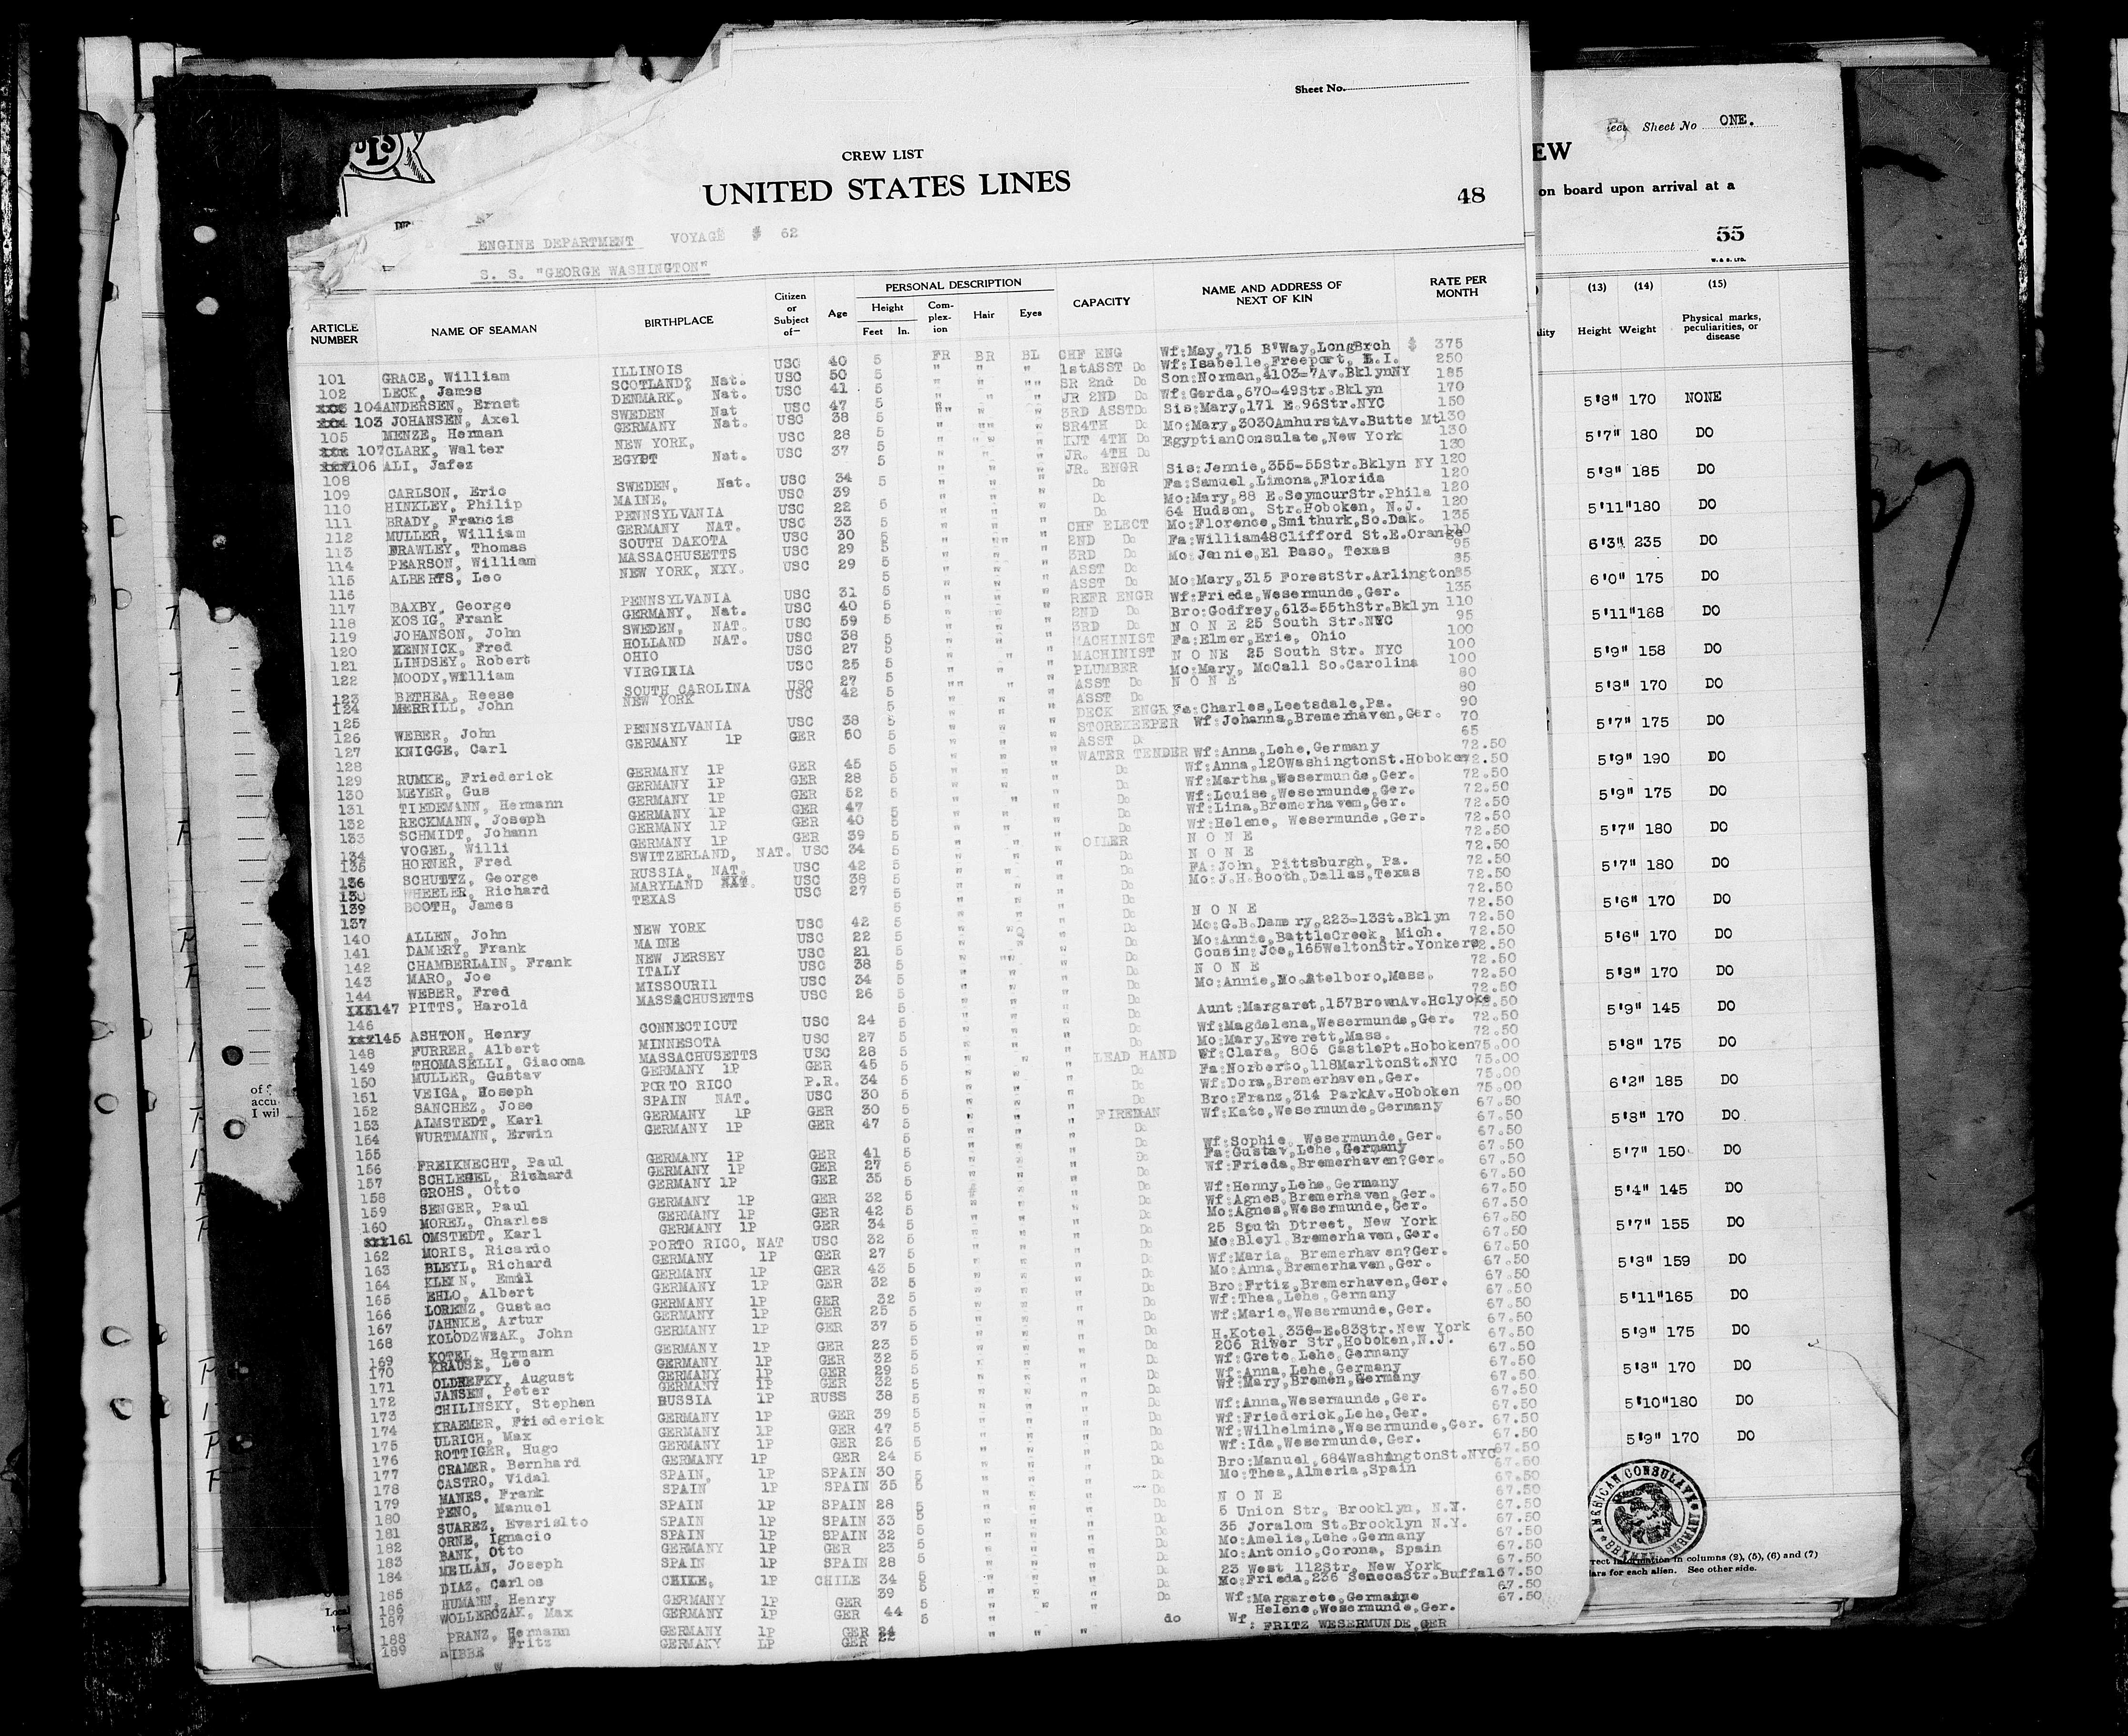 Sheet No.
CREW LIST
UNITED STATES LINES
48
ENGINE DEPARTMENT VOYAGE # 62
S. S. "GEORGE WASHINGTON"
ARTICLE NUMBER NAME OF SEAMAN BIRTHPLACE Citizen or Subject of— Age PERSONAL DESCRIPTION Height Feet In. Com-plex-ion Hair Eyes CAPACITY NAME AND ADDRESS OF NEXT OF KIN RATE PER MONTH
101 GRACE, William ILLINOIS USC 40 5 FR BR BL CHF ENG Wf:May,715 B'Way,LongBrch $ 375
102 LECK, James SCOTLAND, Nat. USC 50 5 " " " 1stASST Do Wf:Isabelle,Freeport, L.I. 250
104 ANDERSEN, Ernst DENMARK, Nat. USC 41 5 " " " SR 2nd Do Son:Norman,4103-7Av.BklynNY 185
103 JOHANSEN, Axel SWEDEN Nat USC 47 5 " " " JR 2ND Do Wf:Gerda,670-49Str.Bklyn 170
105 MENZE, Herman GERMANY Nat. USC 38 5 " " " 3RD ASST Do Sis:Mary,171 E.96Str.NYC 150
107 CLARK, Walter NEW YORK, USC 28 5 " " " SR4TH Do Mo:Mary,3030AmhurstAv.Butte Mt 130
106 ALI, Jafez EGYPT Nat. USC 37 5 " " " 4TH Do EgyptianConsulate,New York 130
108 JR. 4TH Do 130
109 CARLSON, Eric SWEDEN, Nat. USC 34 5 " " " JR. ENGR Sis:Jennie,355-55Str.Bklyn NY 120
110 HINKLEY, Philip MAINE, USC 39 " " " Do Fa:Samuel,Limona,Florida 120
111 BRADY, Francis PENNSYLVANIA USC 22 5 " " " Do Mo:Mary,88 E.SeymourStr.Phila 120
112 MULLER, William GERMANY NAT. USC 33 5 " " " Do 64 Hudson, Str.Hoboken, N.J. 120
113 FRAWLEY, Thomas SOUTH DAKOTA USC 30 5 " " " CHF ELECT Mo:Florence,Smithurk,So.Dak. 135
114 PEARSON, William MASSACHUSETTS USC 29 5 " " " 2ND Do Fa:William48Clifford St.E.Orange 110
115 ALBERTS, Leo NEW YORK, USC 29 5 " " " 3RD Do Mo:Jennie,El Paso, Texas 95
116 ASST Do 85
117 BAXBY, George PENNSYLVANIA USC 31 5 " " " ASST Do Mo:Mary,315 ForestStr.Arlington 85
118 KOSIG, Frank GERMANY, Nat. USC 40 5 " " " REFR ENGR Wf:Frieda,Wesermunde,Ger. 135
119 JOHANSON, John SWEDEN, NAT. USC 59 5 " " " 2ND Do Bro:Godfrey,613-55thStr.Bklyn 110
120 KENNICK, Fred HOLLAND NAT. USC 38 5 " " " 3RD Do N O N E 25 South Str.NYC 95
121 LINDSEY, Robert OHIO USC 27 5 " " " MACHINIST Fa:Elmer,Erie, Ohio 100
122 MOODY,William VIRGINIA USC 25 5 " " " MACHINIST N O N E 25 South Str. NYC 100
123 BETHEA, Reese SOUTH CAROLINA USC 27 5 " " " PLUMBER Mo:Mary, McCall So.Carolina 100
124 MERRILL, John NEW YORK USC 42 5 " " " ASST Do N O N E 80
125 ASST Do 80
126 WEBER, John PENNSYLVANIA USC 38 5 " " " DECK ENGR Fa:Charles,Leetsdale,Pa. 90
127 KNIGGE, Carl GERMANY 1P GER 50 5 " " " STOREKEEPER Wf:Johanna,Bremerhaven,Ger. 70
128 ASST Do 65
129 RUMKE, Friederick GERMANY 1P GER 45 5 " " " WATER TENDER Wf:Anna,Lehe,Germany 72.50
130 MEYER, Gus GERMANY 1P GER 28 5 " " " Do Wf:Anna,120WashingtonSt.Hoboken 72.50
131 TIEDEMANN, Hermann GERMANY 1P GER 52 5 " " " Do Wf:Martha,Wesermunde,Ger. 72.50
132 RECKMANN, Joseph GERMANY 1P GER 47 5 " " " Do Wf:Louise,Wesermunde,Ger. 72.50
133 SCHMIDT, Johann GERMANY 1P GER 40 5 " " " Do Wf:Lina,Bremerhaven,Ger. 72.50
134 VOGEL, Willi GERMANY 1P GER 39 5 " " " Do Wf:Helene, Wesermunde,Ger. 72.50
135 HORNER, Fred SWITZERLAND, NAT. USC 34 5 " " " OILER N O N E 72.50
136 SCHULTZ, George RUSSIA, NAT. USC 42 5 " " " Do N O N E 72.50
138 WHEELER, Richard MARYLAND USC 38 5 " " " Do FA:John, Pittsburgh, Pa. 72.50
139 BOOTH, James TEXAS USC 27 5 " " " Do Mo:J.H.Booth,Dallas,Texas 72.50
137 Do 72.50
140 ALLEN, John NEW YORK USC 42 5 " " " Do N O N E 72.50
141 DAMERY, Frank MAINE USC 22 5 " " " Do Mo:G.B.Damery,223-13St.Bklyn 72.50
142 CHAMBERLAIN, Frank NEW JERSEY USC 21 5 " " " Do Mo:Annie,BattleCreek, Mich. 72.50
143 MARO, Joe ITALY USC 38 5 " " " Do Cousin:Joe,165WeltonStr.Yonkers 72.50
144 WEBER, Fred MISSOURI USC 34 5 " " " Do N O N E 72.50
147 PITTS, Harold MASSACHUSETTS USC 26 5 " " " Do Mo:Annie,No.Atelboro,Mass. 72.50
146 Do 72.50
145 ASHTON, Henry CONNECTICUT USC 24 5 " " " Do Aunt:Margaret,157BrownAv.Holyoke 72.50
148 FURRER, Albert MINNESOTA USC 27 5 " " " Do Wf:Magdalena,Wesermunde,Ger. 72.50
149 THOMASELLI, Giacoma MASSACHUSETTS USC 28 5 " " " Do Mo:Mary,Everett,Mass. 72.50
150 MULLER, Gustav GERMANY 1P GER 45 5 " " " LEAD HAND Wf:Clara, 806 CastlePt.Hoboken 75.00
151 VEIGA, Hoseph PORTO RICO P.R. 34 5 " " " Do Fa:Norberto,118MarltonSt.NYC 75.00
152 SANCHEZ, Jose SPAIN NAT. USC 30 5 " " " Do Wf:Dora,Bremerhaven,Ger. 75.00
153 ALMSTEDT, Karl GERMANY 1P GER 30 5 " " " Do Bro:Franz,314 ParkAv.Hoboken 75.00
154 WURTMANN, Erwin GERMANY 1P GER 47 5 " " " FIREMAN Wf:Kate,Wesermunde,Germany 67.50
155 Do 67.50
156 FREIKNECHT, Paul GERMANY 1P GER 41 5 " " " Do Wf:Sophie, Wesermunde,Ger. 67.50
157 SCHLEGEL, Richard GERMANY 1P GER 27 5 " " " Do Fa:Gustav,Lehe,Germany 67.50
158 GROHS, Otto GERMANY 1P GER 35 5 " " " Do Wf:Frieda,Bremerhaven?Ger. 67.50
159 SENGER, Paul GERMANY 1P GER 32 5 " " " Do Wf:Henny,Lehe,Germany 67.50
160 MOREL, Charles GERMANY 1P GER 42 5 " " " Do Wf:Agnes,Bremerhaven,Ger. 67.50
161 OMSTEDT, Karl GERMANY 1P GER 34 5 " " " Do Mo:Agnes,Wesermunde,Ger. 67.50
162 MORIS, Ricardo PORTO RICO, NAT USC 32 5 " " " Do 25 South Dtreet, New York 67.50
163 BLEYL, Richard GERMANY 1P GER 27 5 " " " Do Mo:Bleyl,Bremerhaven,Ger. 67.50
164 KLEIN, Emil GERMANY 1P GER 43 5 " " " Do Wf:Maria, Bremerhaven?Ger. 67.50
165 EHLO, Albert GERMANY 1P GER 32 5 " " " Do Mo:Anna,Bremerhaven,Ger. 67.50
166 LORENZ, Gustac GERMANY 1P GER 32 5 " " " Do Bro:Frtiz,Bremerhaven,Ger. 67.50
167 JAHNKE, Artur GERMANY 1P GER 25 5 " " " Do Wf:Thea,Lehe,Germany 67.50
168 KOLODZWZAK, John GERMANY 1P GER 37 5 " " " Do Wf:Marie,Wesermunde,Ger. 67.50
169 KOTEL, Hermann GERMANY 1P GER 23 5 " " " Do H.Kotel,336-E.83Str.New York 67.50
170 KRAUSE, Leo GERMANY 1P GER 32 5 " " " Do 206 River Str,Hoboken,N.J. 67.50
171 OLDREFKY, August GERMANY 1P GER 29 5 " " " Do Wf:Grete,Lehe,Germany 67.50
172 JANSEN, Peter GERMANY 1P GER 32 5 " " " Do Wf:Anna,Lehe,Germany 67.50
173 CHILINSKY, Stephen RUSSIA 1P RUSS 38 5 " " " Do Wf:Mary,Bremen,Germany 67.50
174 KRAEMER, Friederick GERMANY 1P GER 39 5 " " " Do Wf:Anna,Wesermunde,Ger. 67.50
175 ULRICH, Max GERMANY 1P GER 47 5 " " " Do Wf:Friederick,Lehe,Ger. 67.50
176 ROTTIGER, Hugo GERMANY 1P GER 26 5 " " " Do Wf:Wilhelmine,Wesermunde,Ger. 67.50
177 CRAMER, Bernhard GERMANY 1P GER 24 5 " " " Do Wf:Ida,Wesermunde,Ger. 67.50
178 CASTRO, Vidal SPAIN, 1P SPAIN 30 5 " " " Do Bro:Manuel,684WashingtonSt.NYC 67.50
179 MANES, Frank SPAIN 1P SPAIN 35 5 " " " Do Mo:Thea,Almeria,Spain 67.50
180 PENO, Manuel SPAIN 1P SPAIN 28 5 " " " Do N O N E 67.50
181 SUAREZ, Evarialto SPAIN 1P SPAIN 33 5 " " " Do 5 Union Str, Brooklyn, N.Y. 67.50
182 ORNE, Ignacio SPAIN 1P SPAIN 32 5 " " " Do 35 Joralom St.Brooklyn N.Y. 67.50
183 BANK, Otto GERMANY 1P GER 23 5 " " " Do Mo:Amelie,Lehe,Germany 67.50
184 MEILAN, Joseph SPAIN 1P SPAIN 28 5 " " " Do Mo:Antonio,Corona, Spain 67.50
185 DIAZ, Carlos CHILE, 1P CHILE 34 5 " " " Do 23 West 112Str, New York 67.50
186 HUMANN, Henry GERMANY 1P GER 39 5 " " " Do Mo:Frieda,236 SenecaStr.Buffalo 67.50
187 WOLLERCZAK, Max GERMANY 1P GER 44 5 " " " Do Wf:Margarete,Germany 67.50
188 PRANZ, Hermann GERMANY 1P GER 24 " " " do Wf Helene,Wesermunde,Ger. 67.50
189 RIBBE Fritz GERMANY LP GER 22 : FRITZ WESERMUNDE,GER
Sheet No ONE.
EW
on board upon arrival at a
55
W. & S. LTD.
(13) (14) (15)
Height Weight Physical marks, peculiarities, or disease
5'8" 170 NONE
5'7" 180 DO
5'8" 185 DO
5'11" 180 DO
6'3" 235 DO
6'0" 175 DO
5'11" 168 DO
5'9" 158 DO
5'8" 170 DO
5'7" 175 DO
5'9" 190 DO
5'9" 175 DO
5'7" 180 DO
5'7" 180 DO
5'6" 170 DO
5'6" 170 DO
5'8" 170 DO
5'9" 145 DO
5'8" 175 DO
6'2" 185 DO
5'8" 170 DO
5'7" 150 DO
5'4" 145 DO
5'7" 155 DO
5'8" 159 DO
5'11" 165 DO
5'9" 175 DO
5'8" 170 DO
5'10" 180 DO
5'9" 170 DO
AMERICAN CONSULATE
BREMEN
rect information in columns (2), (5), (6) and (7)
lars for each alien. See other side.
of
accu
I wil
Local